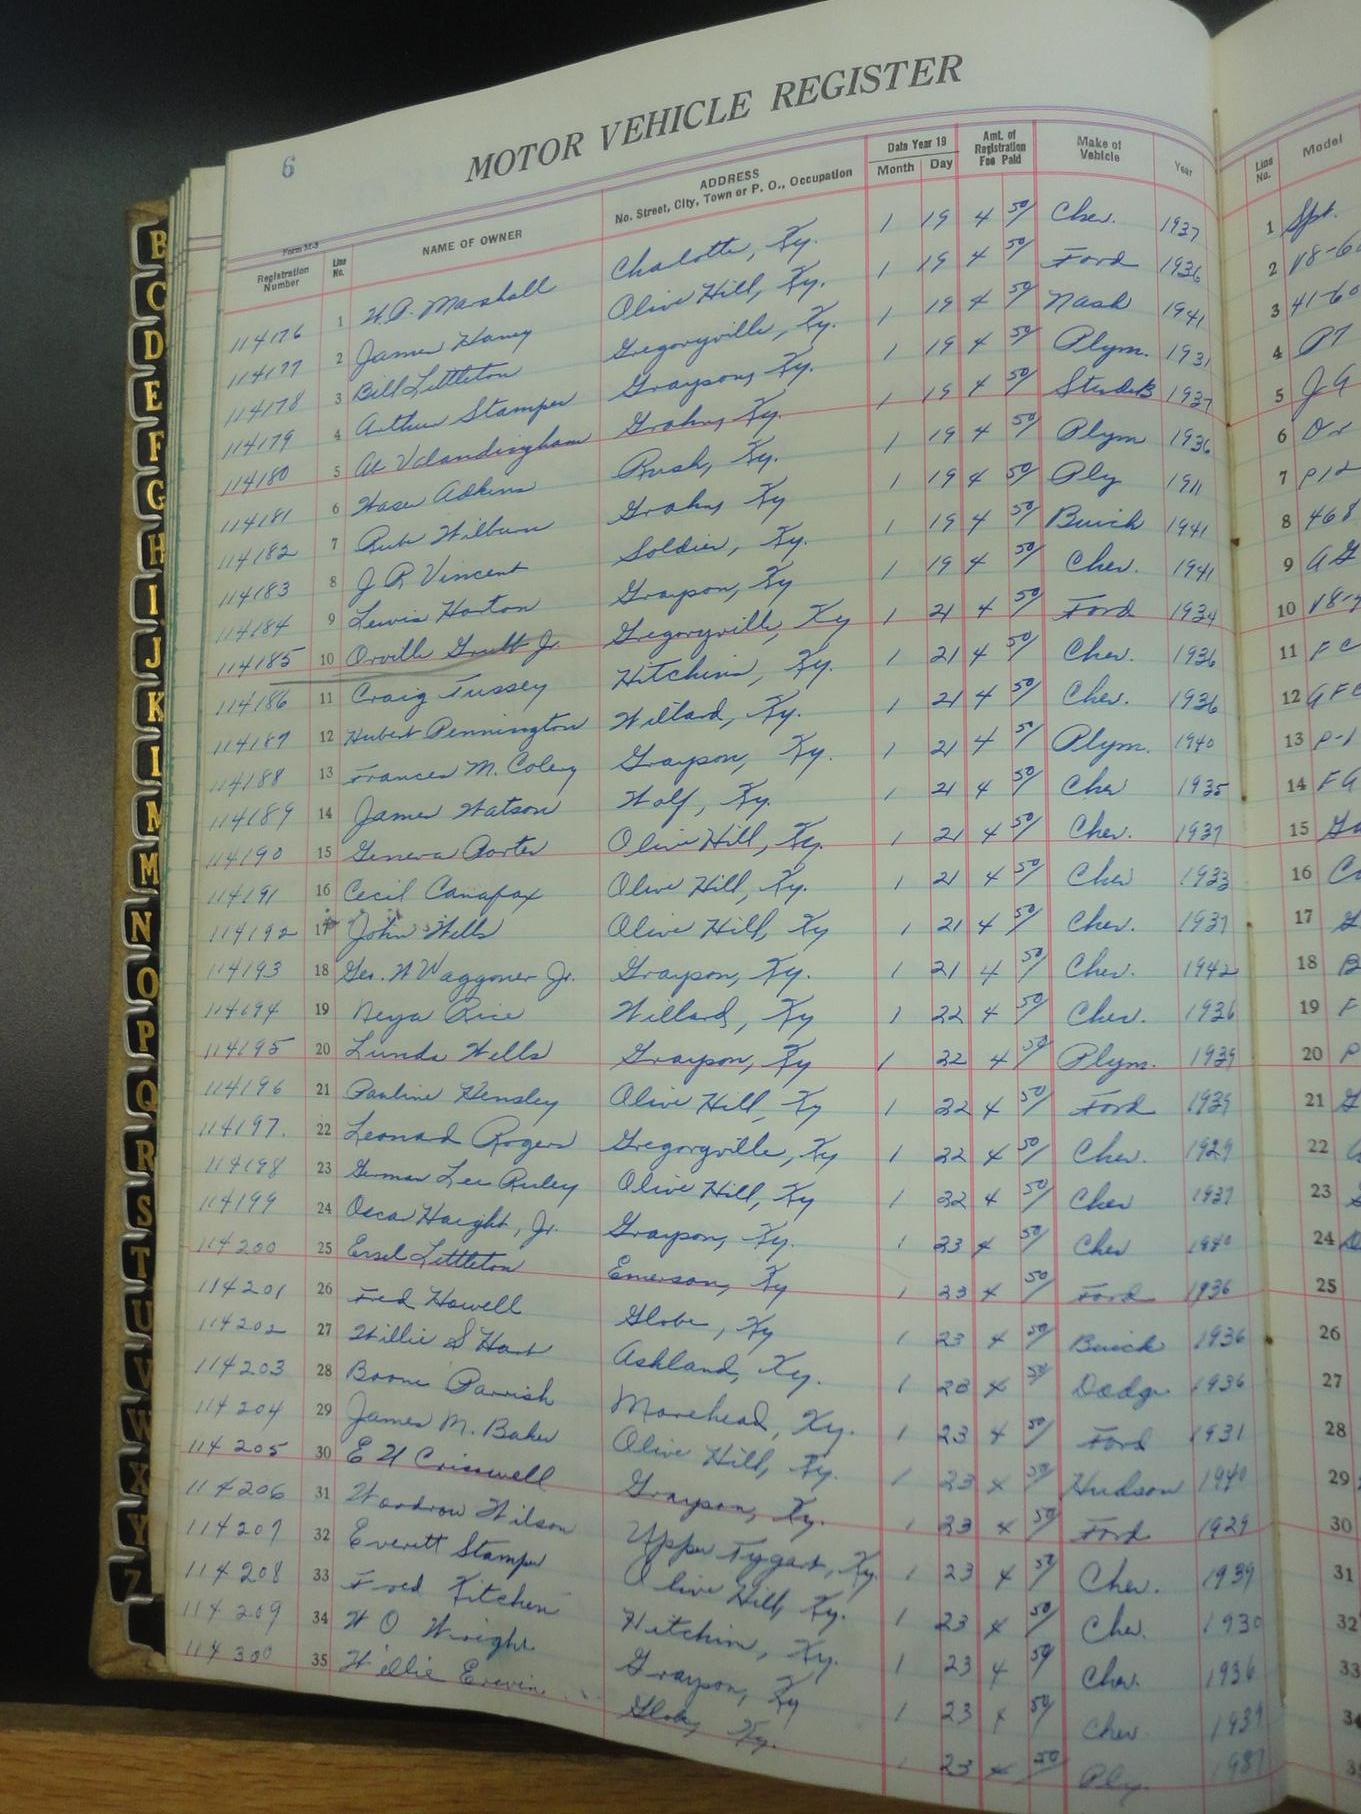 6
MOTOR VEHICLE REGISTER
Form M-3
Registration Number Line No. NAME OF OWNER ADDRESS No. Street, City, Town or P. O., Occupation Date Year 19 Month Day Amt. of Registration Fee Paid Make of Vehicle Year Line No. Model
114176 1 H.A. Marshall Chalotte, Ky. 1 19 4 50/ Chev. 1937 1 Spt.
114177 2 James Haney Olive Hill, Ky. 1 19 4 50/ Ford 1936 2 V8-6
114178 3 Bill Littleton Gregoryville, Ky. 1 19 4 50/ Nash 1941 3 41-60
114179 4 Arthur Stamper Grayson, Ky. 1 19 4 50/ Plym. 1931 4 P7
114180 5 Al Valandingham Grahn, Ky. 1 19 4 50/ StudeB 1937 5 JA
114181 6 Adkins Rush, Ky. 1 19 4 50/ Plym 1936 6
114182 7 Rube Wilburn Grahn, Ky 1 19 4 50/ Ply 1911 7 P12
114183 8 J R Vincent Soldier, Ky. 1 19 4 50/ Buick 1941 8 468
114184 9 Lewis Horton Grayson, Ky 1 19 4 50/ Chev. 1941 9 AG
114185 10 Orville Jr. Gregoryville, Ky 1 21 4 50/ Ford 1934 10 V8-
114186 11 Craig Tussey Hitchins, Ky. 1 21 4 50/ Chev. 1936 11 FC
114187 12 Hubert Pennington Willard, Ky. 1 21 4 50/ Chev. 1936 12 GFC
114188 13 Frances M. Coley Grayson, Ky. 1 21 4 50/ Plym. 1940 13 P-1
114189 14 James Watson Wolf, Ky. 1 21 4 50/ Chev 1935 14 FA
114190 15 Geneva Porter Olive Hill, Ky. 1 21 4 50/ Chev. 1937 15 Ga
114191 16 Cecil Canafax Olive Hill, Ky. 1 21 4 50/ Chev 1933 16 C
114192 17 John Wells Olive Hill, Ky 1 21 4 50/ Chev. 1937 17 G
114193 18 Geo. W Waggoner Jr. Grayson, Ky. 1 21 4 50/ Chev. 1942 18 B
114194 19 Rice Willard, Ky 1 22 4 50/ Chev. 1936 19 F
114195 20 Lunda Wells Grayson, Ky 1 22 4 50/ Plym. 1939 20 P
114196 21 Pauline Hensley Olive Hill, Ky 1 22 4 50/ Ford 1939 21 G
114197. 22 Leonard Rogers Gregoryville, Ky 1 22 4 50/ Chev. 1929 22
114198 23 German Lee Ruley Olive Hill, Ky 1 22 4 50/ Chev 1937 23
114199 24 Oscar Haight, Jr. Grayson, Ky. 1 23 4 50/ Chev 1940 24 D
114200 25 Ersel Littleton Emerson, Ky 1 23 4 50/ Ford 1936 25
114201 26 Fred Howell Globe, Ky 1 23 4 50/ Buick 1936 26
114202 27 Willie S Hart Ashland, Ky. 1 23 4 50/ Dodge 1936 27
114203 28 Boone Parrish Morehead, Ky. 1 23 4 50/ Ford 1931 28
114204 29 James M. Baker Olive Hill, Ky. 1 23 4 50/ Hudson 1940 29
114205 30 E H Crisswell Grayson, Ky. 1 23 4 50/ Ford 1929 30
114206 31 Woodrow Wilson Upper Tygart, Ky. 1 23 4 50/ Chev. 1939 31
114207 32 Everett Stamper Olive Hill, Ky. 1 23 4 50/ Chev. 1930 32
114208 33 Fred Kitchen Hitchins, Ky. 1 23 4 50/ Chev. 1936 33
114209 34 W O Wright Grayson, Ky 1 23 4 50/ Chev 1939 34
114300 35 Willie Ervin Globe, Ky. 1 23 4 50/ Ply. 1937
B
C
D
E
F
G
H
I
J
K
M
N
O
P
Q
R
S
T
U
V
W
X
Y
Z